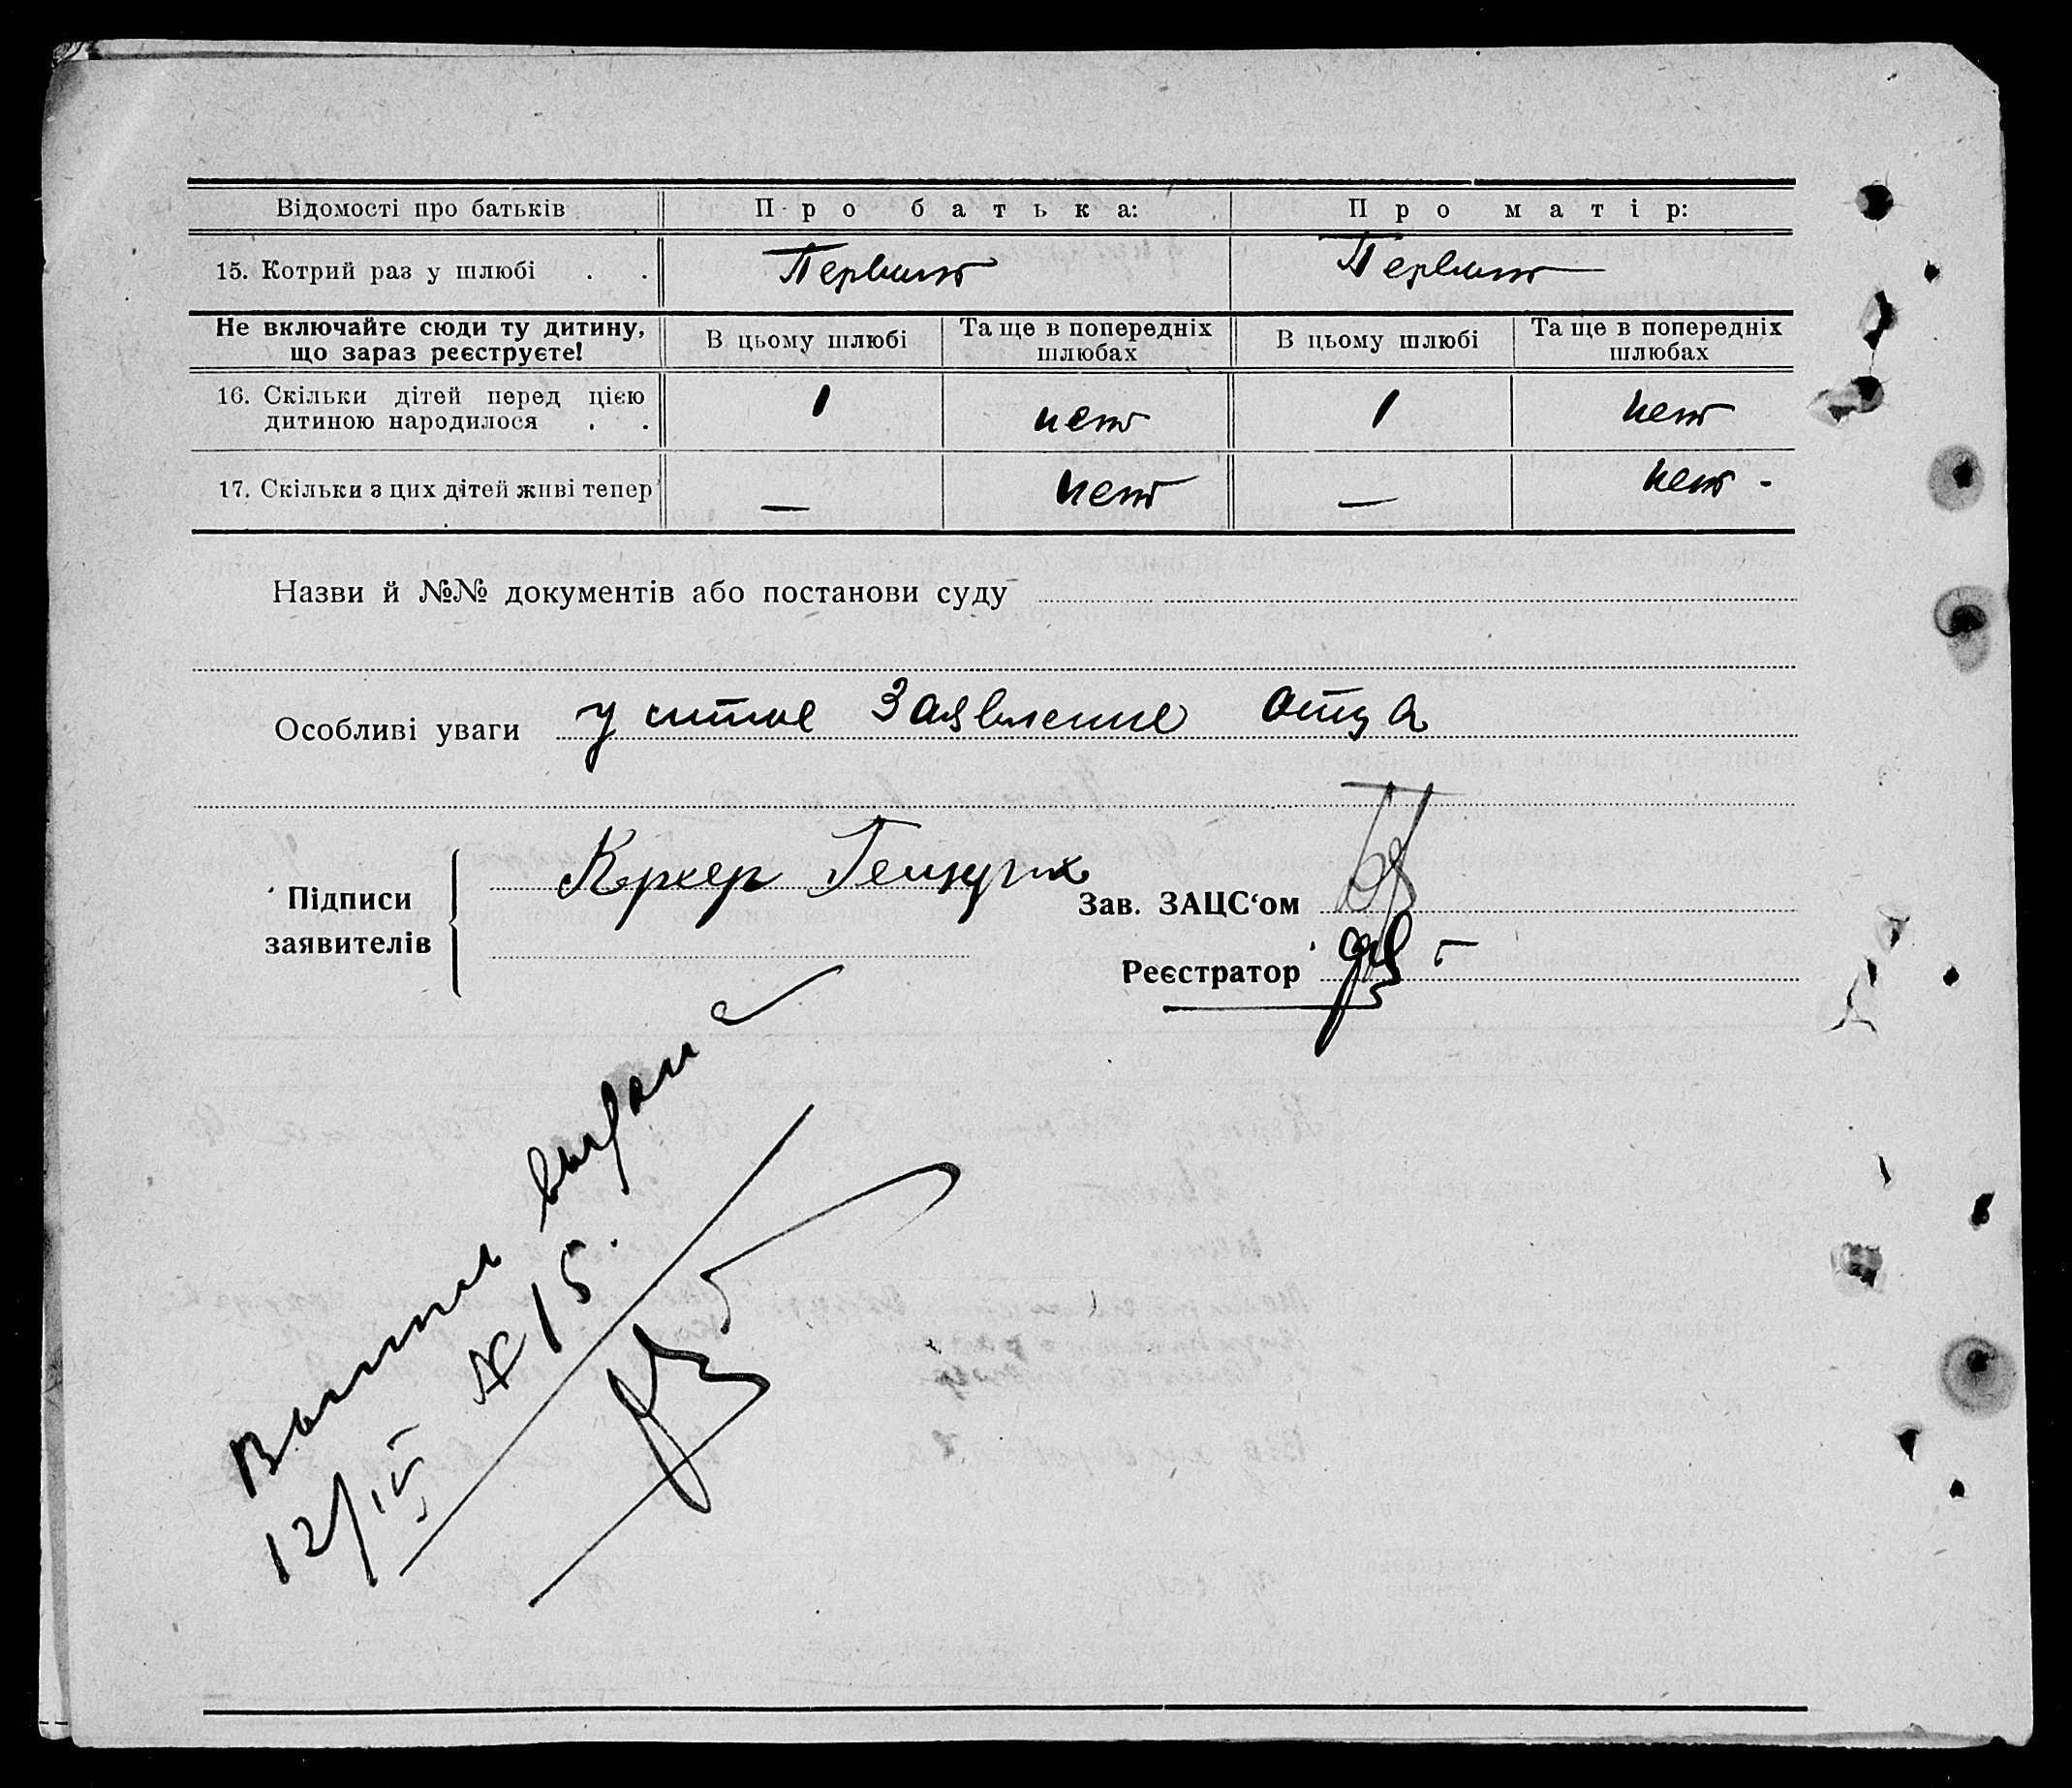 Відомості про батьків Про батька: Про матір:
15. Котрий раз у шлюбі . . Первый Первый
Не включайте сюди ту дитину, що зараз реєструєте! В цьому шлюбі Та ще в попередніх шлюбах В цьому шлюбі Та ще в попередніх шлюбах
16. Скільки дітей перед цією
дитиною народилося . . 1 нет 1 нет
17. Скільки з цих дітей живі тепер — нет — нет -
Назви й №№ документів або постанови суду
Особливі уваги устное Заявление отца
Підписи
заявителів
Генрих
Зав. ЗАЦС‘ом
Реєстратор
выдана
12/IV № 15.